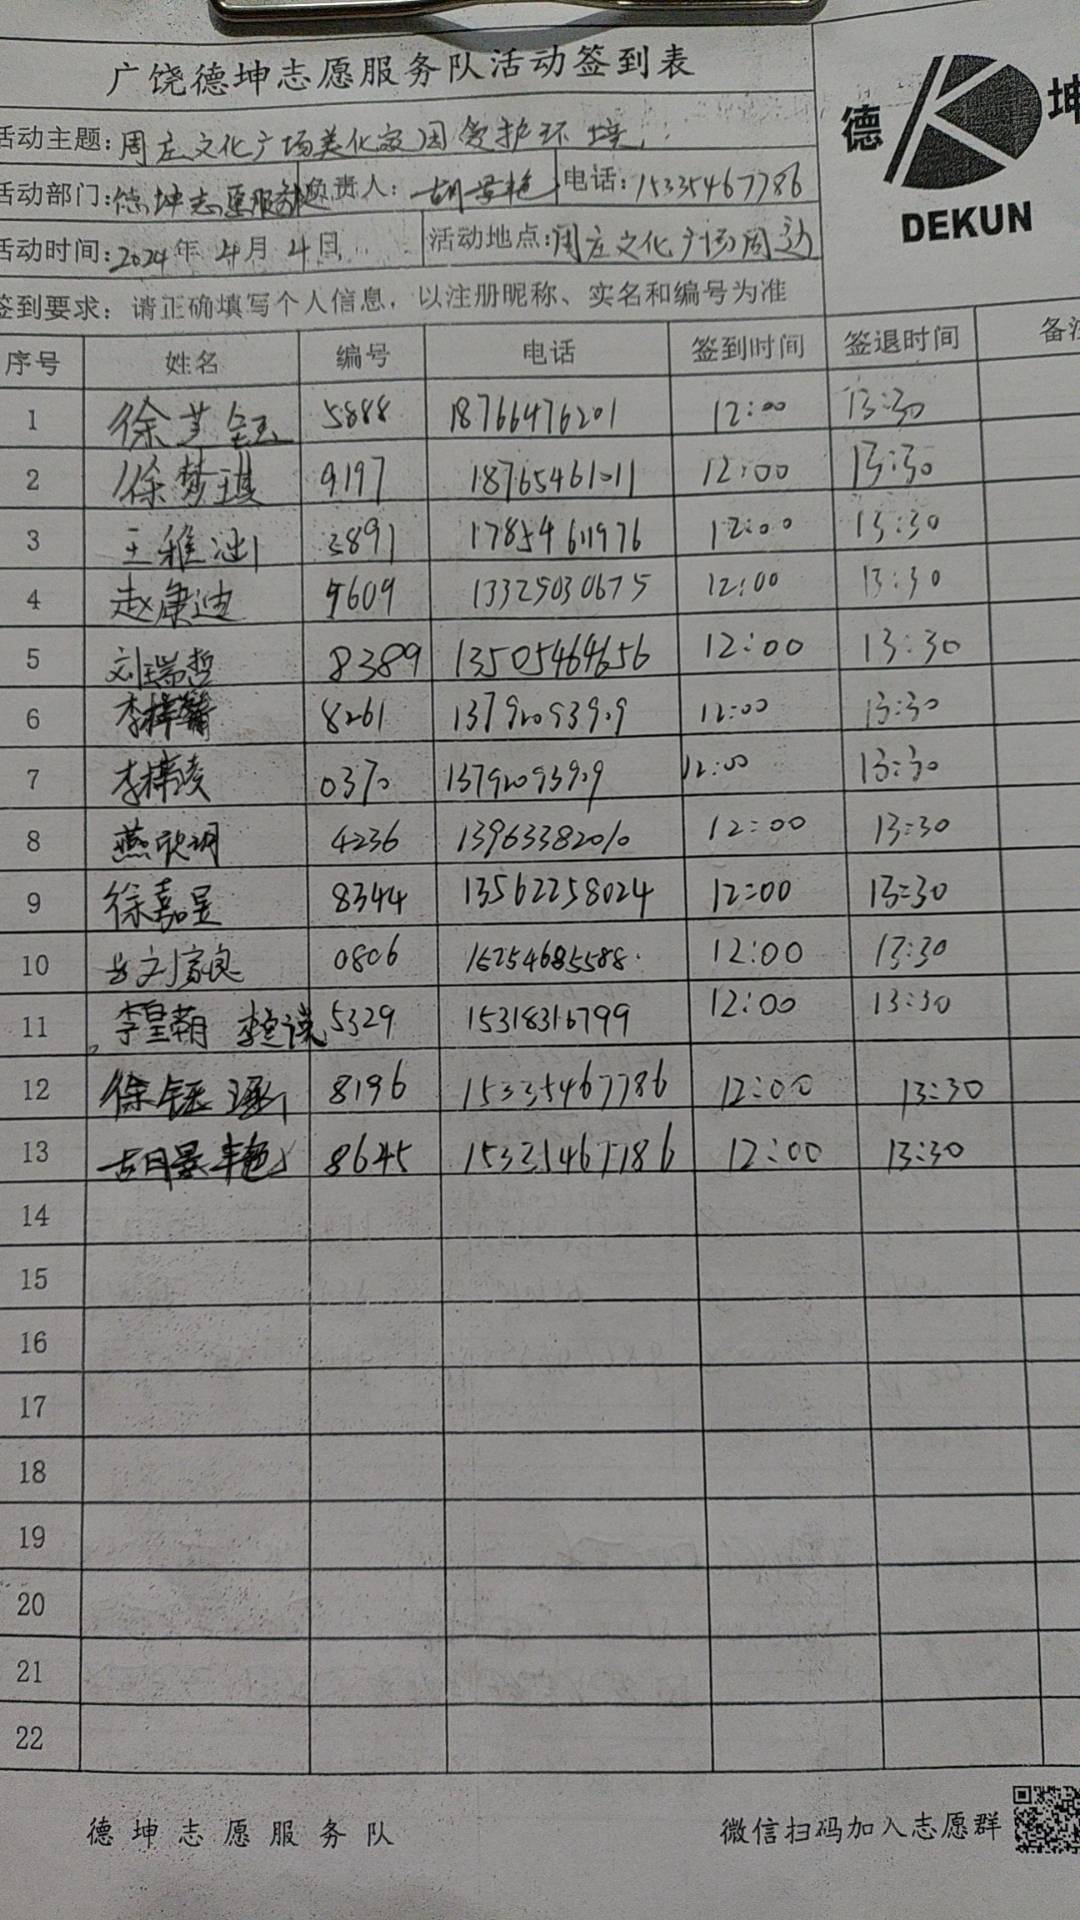 广饶德坤志愿服务队活动签到表
德 坤
DEKUN
活动主题：周庄文化广场美化家园爱护环境
活动部门：德坤志愿服务队 负责人：胡景艳 电话：15335467786
活动时间：2024年4月4日 活动地点：周庄文化广场周边
签到要求：请正确填写个人信息，以注册昵称、实名和编号为准
序号 姓名 编号 电话 签到时间 签退时间 备注
1 徐芝钰 5888 18766476201 12:00 13:30
2 徐梦琪 9197 18765461011 12:00 13:30
3 王雅 3891 17854611976 12:00 13:30
4 赵康迪 9609 13325030675 12:00 13:30
5 刘瑞哲 8389 13505464656 12:00 13:30
6 李梓馨 8261 13792093909 12:00 13:30
7 李梓凌 0370 13792093909 12:00 13:30
8 燕欣玥 4236 13963382010 12:00 13:30
9 徐嘉昱 8344 13562258024 12:00 13:30
10 刘家良 0806 15254685588 12:00 13:30
11 李皇朝 李 5329 15318316799 12:00 13:30
12 徐钰涵 8196 15335467786 12:00 13:30
13 胡景艳 8645 15335467786 12:00 13:30
14
15
16
17
18
19
20
21
22
德坤志愿服务队 微信扫码加入志愿群